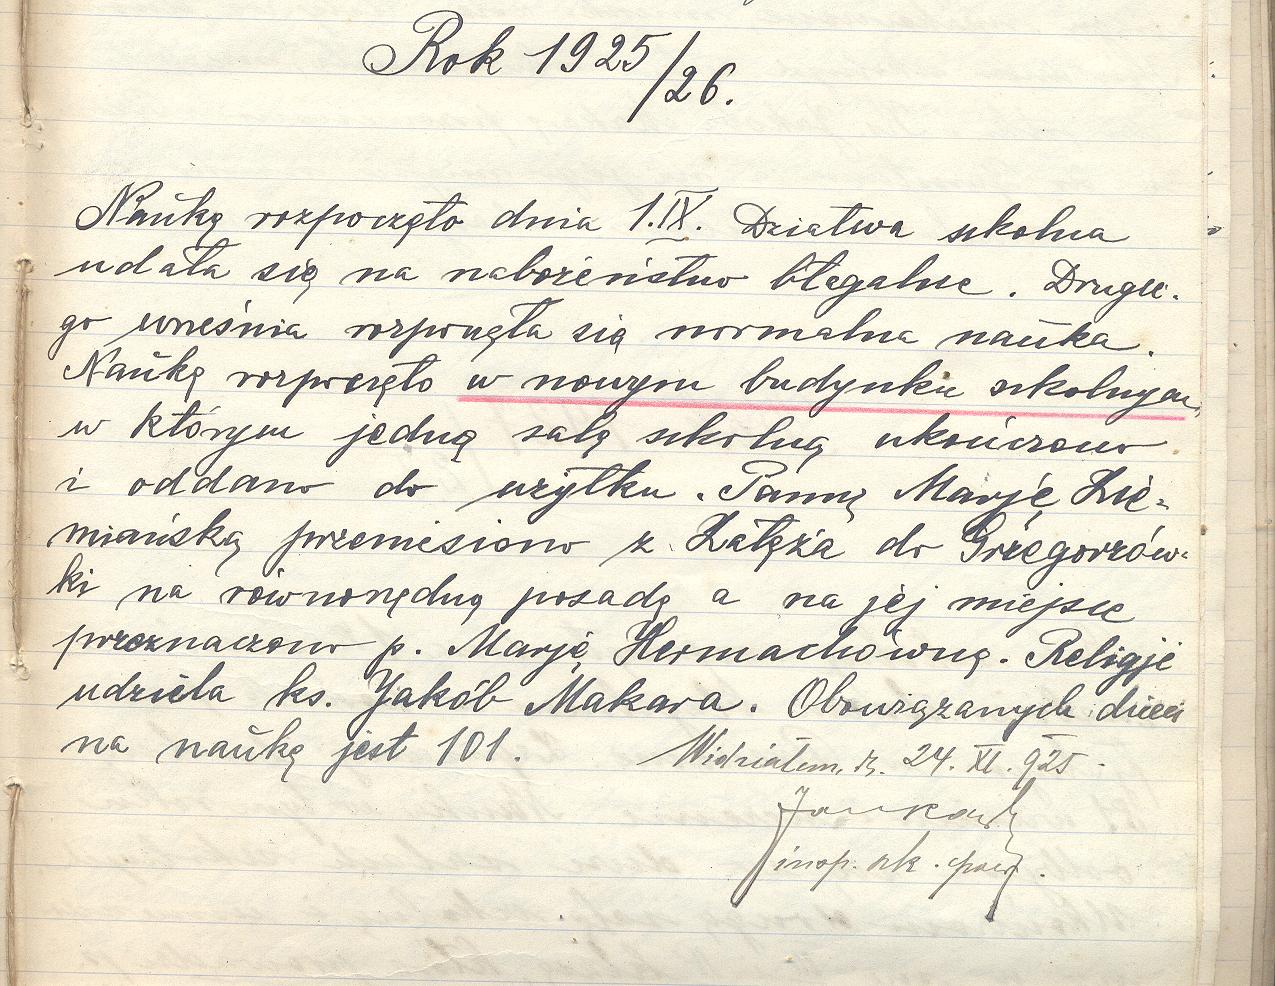 Rok 1925/26.
Naukę rozpoczęto dnia 1.IX. Dziatwa szkolna
udała się na nabożeństwo błagalne. Drugie-
go września rozpoczęła się normalna nauka.
Naukę rozpoczęto w nowym budynku szkolnym,
w którym jedną salę szkolną ukończono
i oddano do użytku. Pannę Marję Zie-
miańską przeniesiono z Załęża do Grzegorzów-
ki na równorzędną posadę a na jej miejsce
przeznaczono p. Marję Hermachównę. Religję
udziela ks. Jakób Makara. Obowiązanych dzieci
na naukę jest 101.
Widziałem, d. 24. XI. 925.
insp. szk. pow.